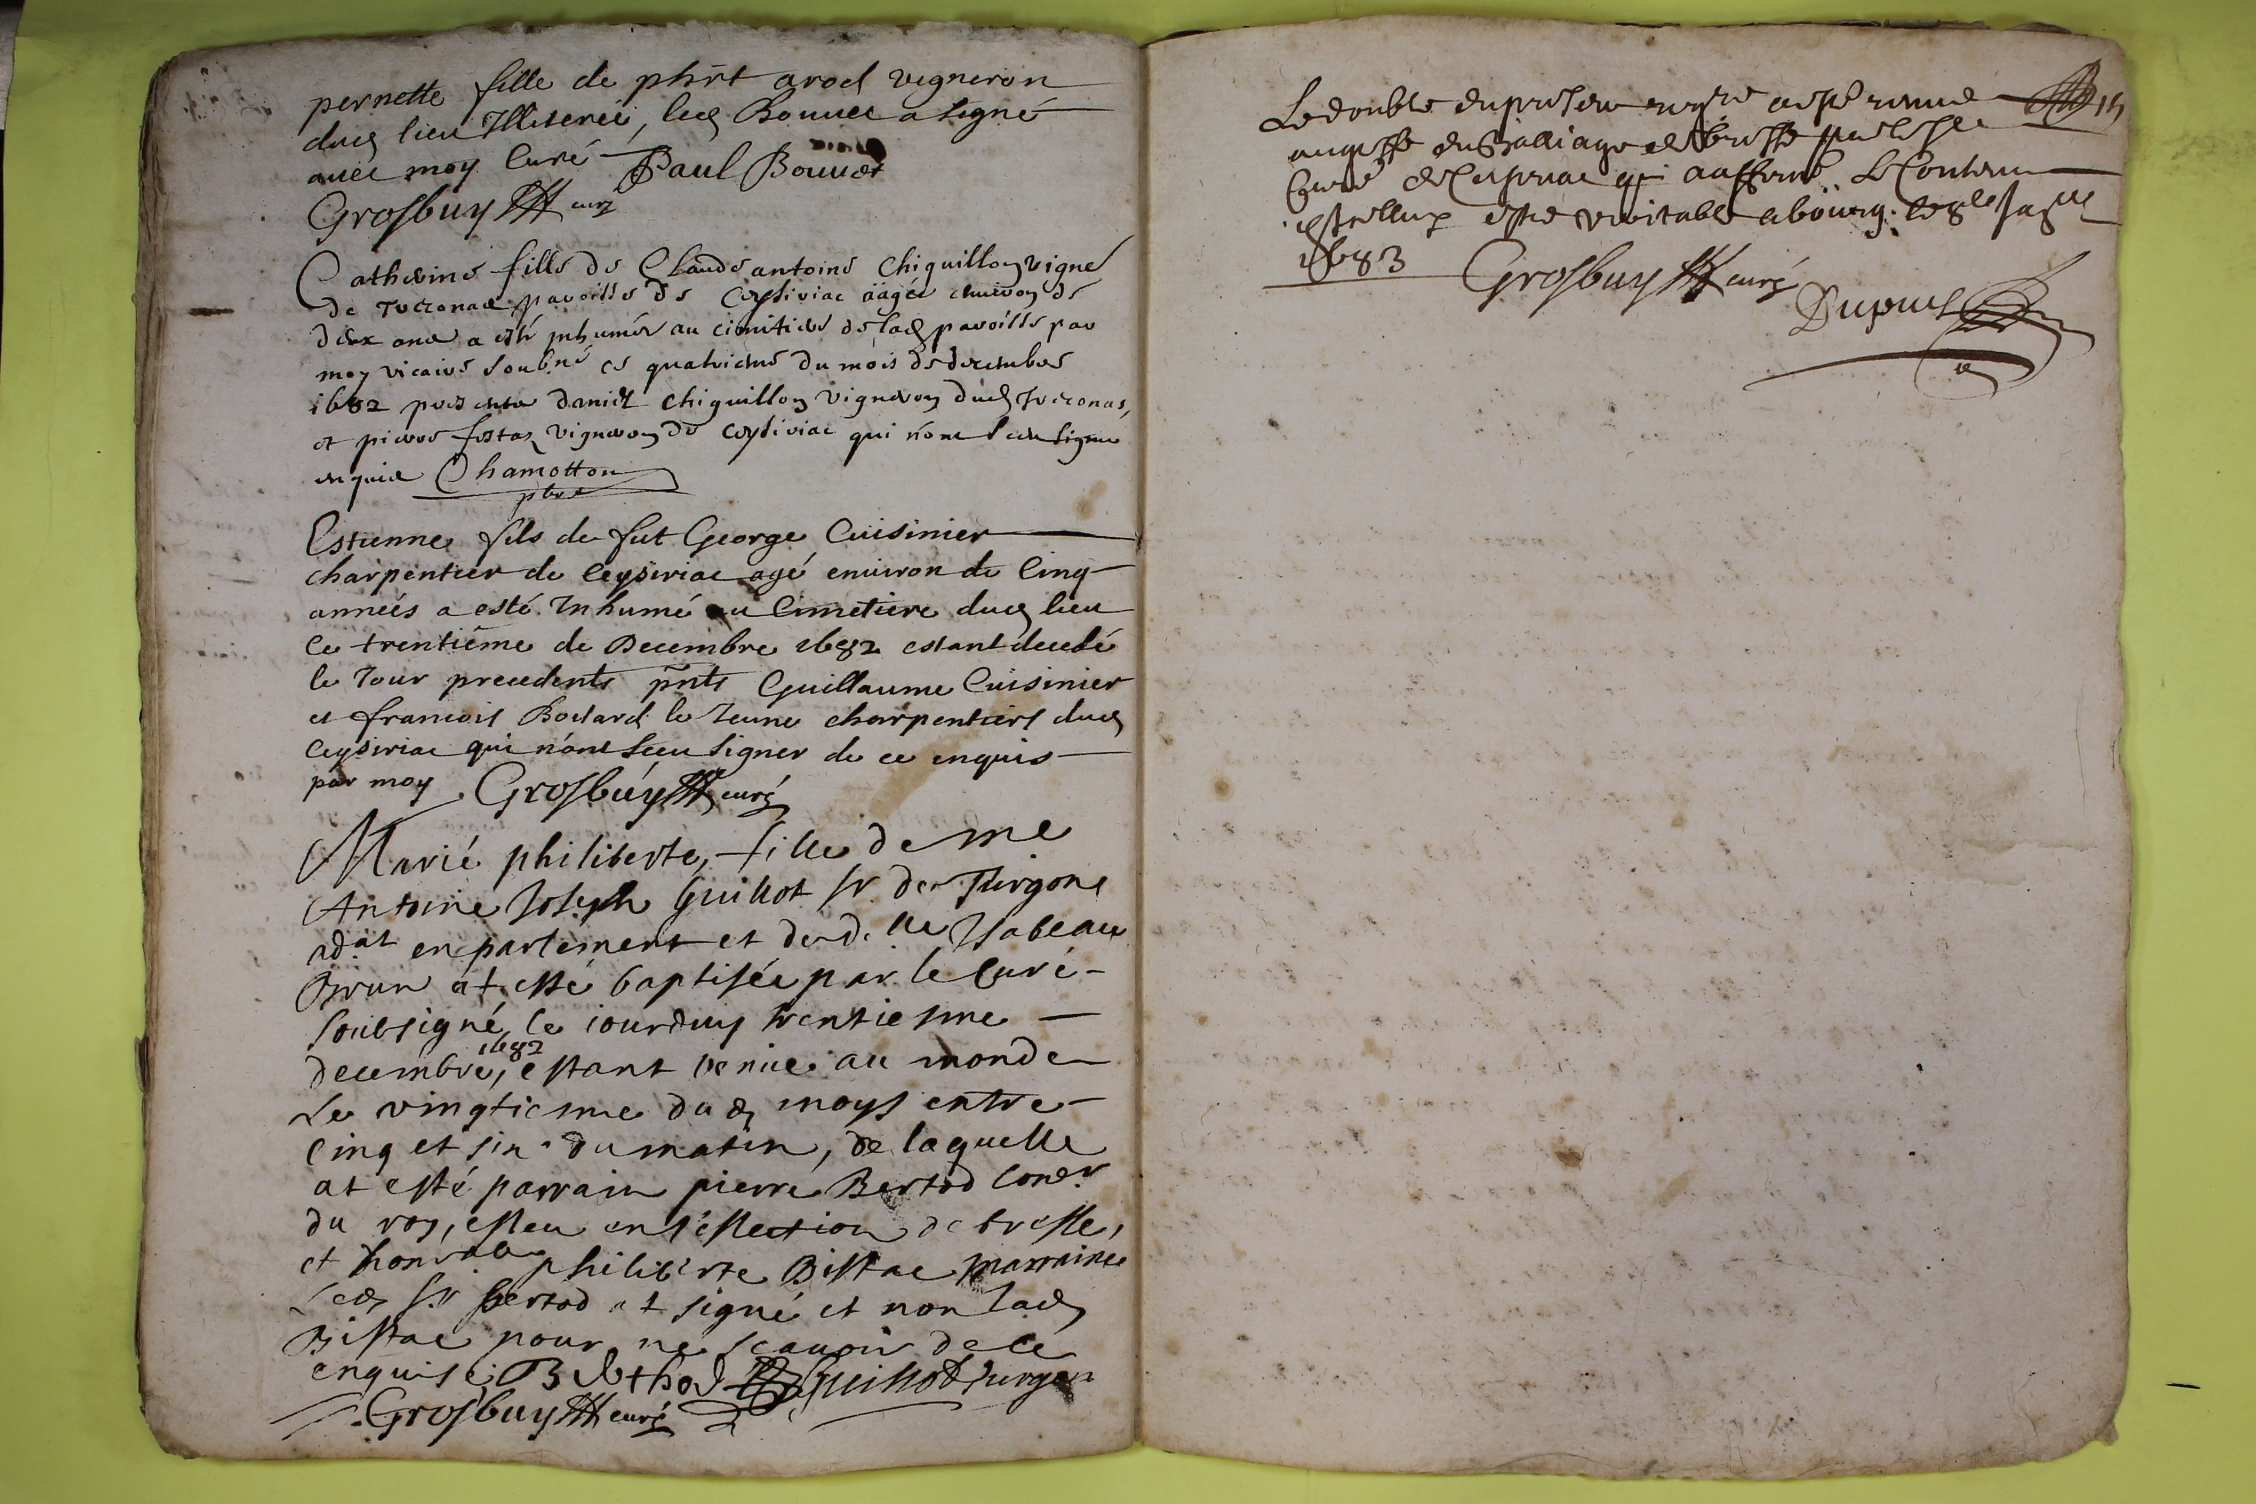 pernette fille de phirt arod vigneron
dud lieu Illiterée, led Bouuet a signé
auec moy Curé Paul Bouuet
Grosbuy curé
Catherine fille de Claude antoine Chiquillon vigne
de parroisse de Ceysiriac aagée enuiron de
deux ans a esté inhumée au cimitiere de lad parroisse par
moy vicaire soubné ce quatrieme du mois de decembre
1682 presents daniel chiquillon vigneron dud
et pierre vigneron de ceysiriac qui nont sceu signer
enquis Chamotton
pbre
Estienne fils de fut George Cuisinier
charpentier de Ceysiriac agé enuiron de Cinq
années a esté Inhumé au Cimetiere dud lieu
Ce trentiéme de Decembre 1682 estant decedé
le Jour precedents pnts Guillaume Cuisinier
et francois Bodard le Jeune charpentiers dud
Ceysiriac qui n'ont sceu signer de ce enquis
par moy Grosbuy curé
Marié philiberte, fille de me
Antoine Joseph Guillot sr. de Turgons
ad.at en parlement et de d.lle Isabeau
Brun at esté baptisée par le Curé
soubsigné le iourduy trentiesme
decembre, 1682 estant venue au monde
Le vingtiesme dud moys entre
Cinq et six du matin, de laquelle
at esté parrain pierre Bertod Con.er
du roy, esleu en l'eslection de bresse,
et philiberte Bistac marraine
Led sr. bertod at signé et non lad
Bistac pour ne scauoir de ce
enquise. Berthod Guillot Turgon
Grosbuy curé
Le double du present a esté
au greffe du Balliage de bresse par le
Curé de Ceyseriac qui a affermé Le Contenu
estre veritable a bourg. le
1683 Grosbuy curé
Dupuis